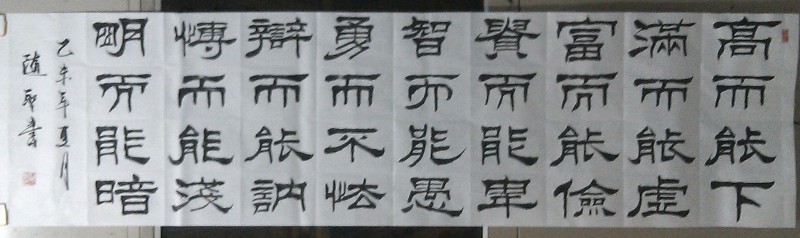 高而能下
滿而能虛
富而能儉
貴而能卑
智而能愚
勇而不怯
辯而能訥
愽而能淺
明而能暗
乙未年夏月
隨書